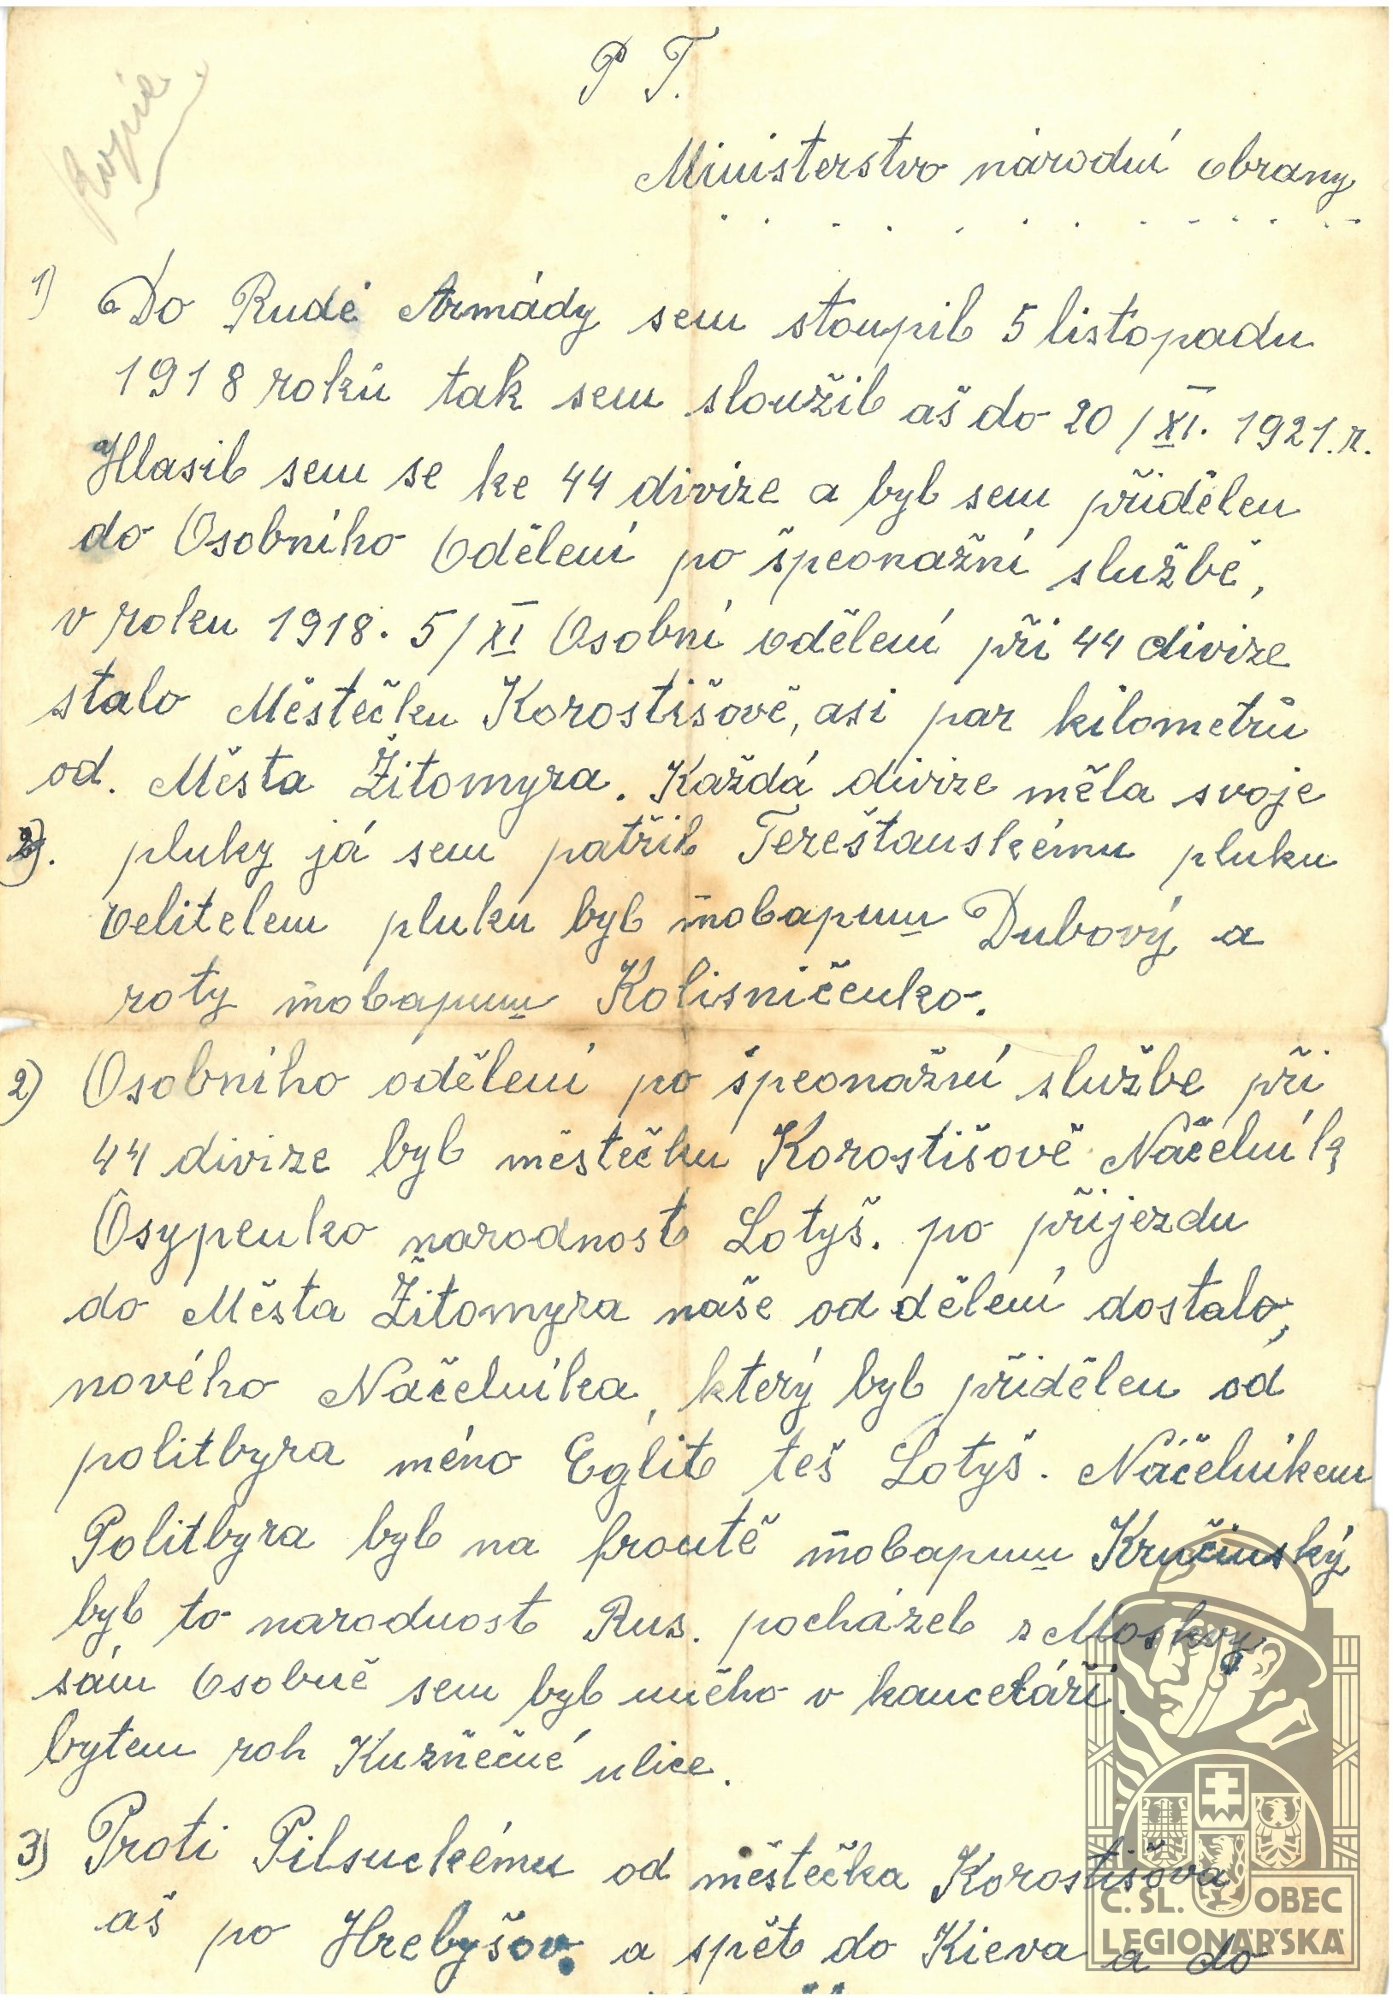 Kopie
P T.
Ministerstvo národní obrany
1) Do Rudé Armády sem stoupil 5 listopadu
1918 roků tak sem sloužil aš do 20/XI. 1921.r.
Hlasil sem se ke 44 divize a byl sem přidělen
do Osobního Odělení po špeonažní službě,
v roku 1918. 5/XI Osobní odělení při 44 divize
stalo Městečku Korostišově, asi par kilometrů
od. Města Žitomyra. Každá divize měla svoje
2). pluky já sem patřil Tereštanskému pluku
velitelem pluku byl товарищ Dubový a
roty товарищ Kolisničenko.
2) Osobního odělení po špeonažní službe při
44 divize byl městečku Korostišově Náčelník
Osypenko narodnost Lotyš. po přijezdu
do Města Žitomyra naše oddělení dostalo,
nového Náčelníka, který byl přidělen od
politbyra méno Eglit teš Lotyš. Náčelníkem
Politbyra byl na frontě товарищ Kručinský
byl to narodnost Rus. pocházel z Moskvy
sám Osobně sem byl uněho v kanceláři.
bytem roh Kuzněčné ulice.
3) Proti Pilsuckému od městečka Korostišova
aš po Hrebyšov. a spět do Kieva a do
Č. SL. OBEC
LEGIONÁŘSKÁ